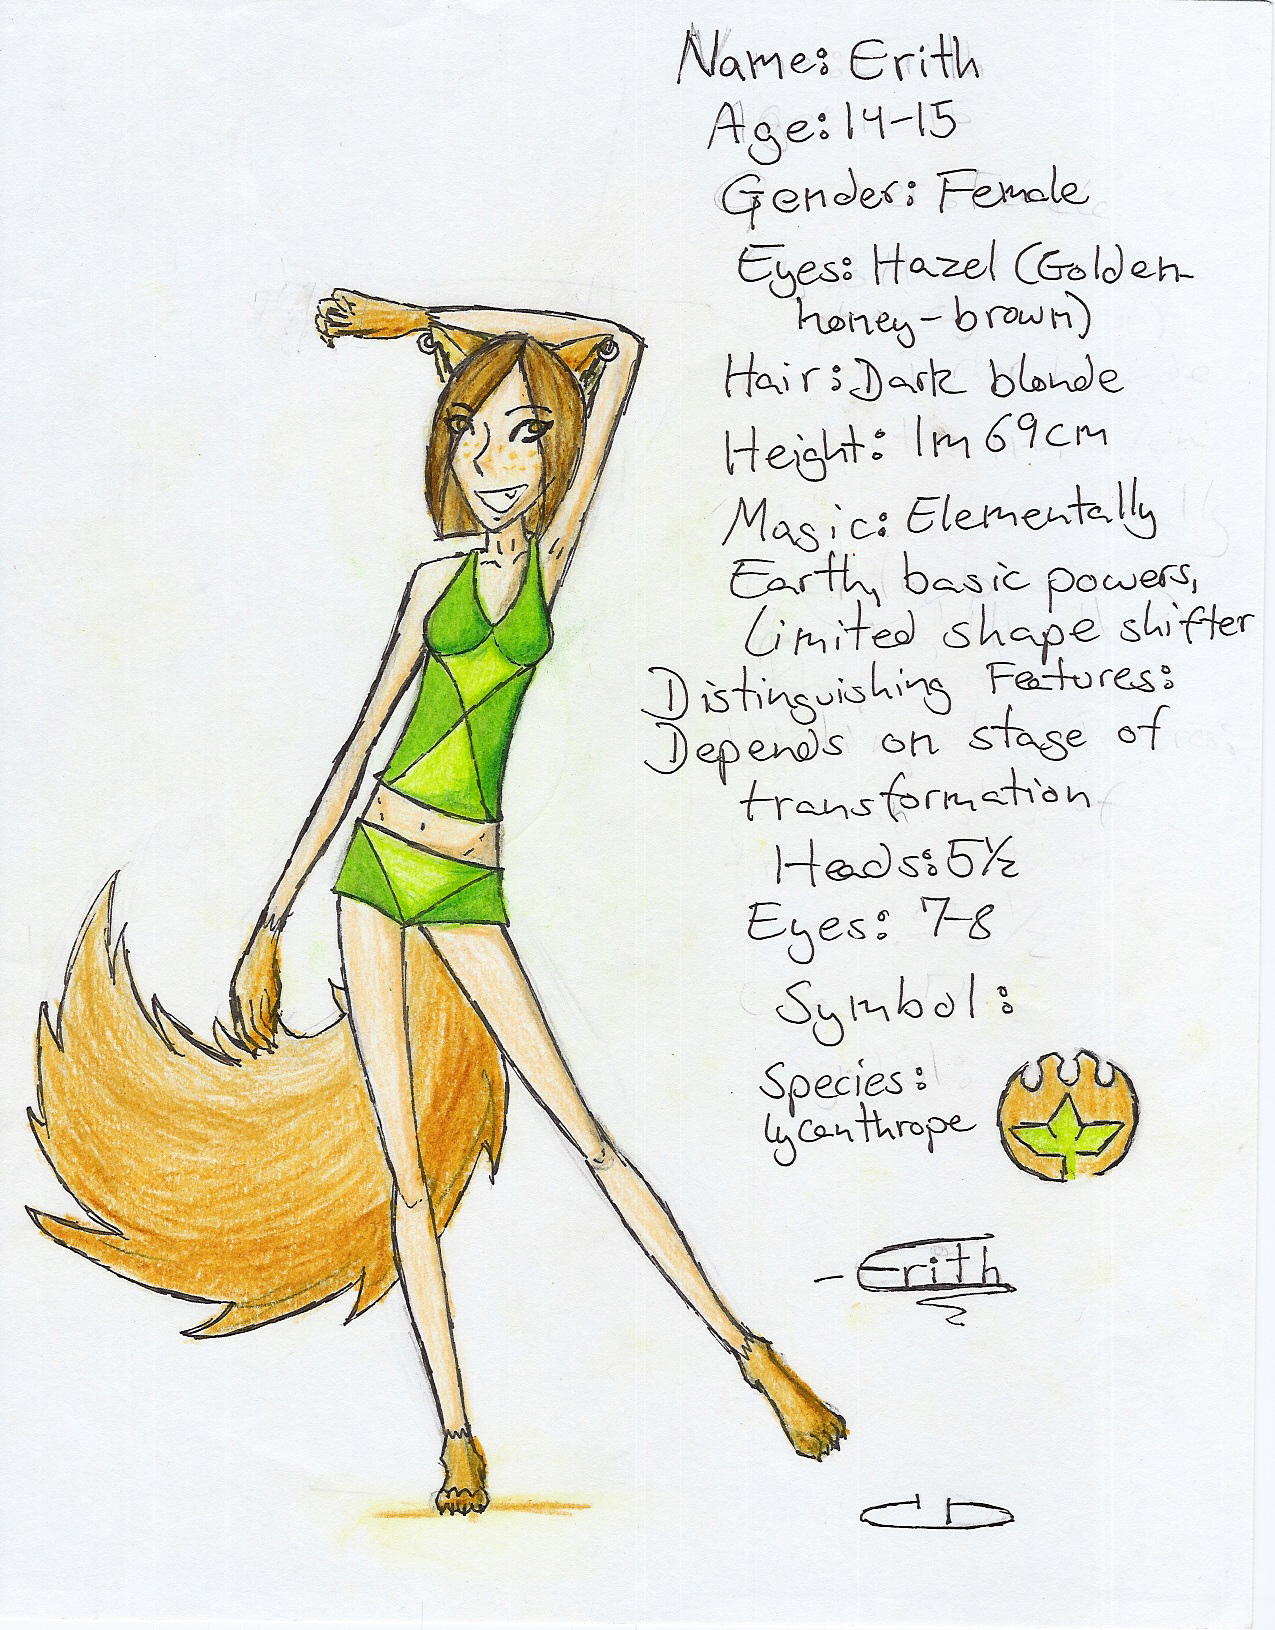 Name: Erith
Age: 14-15
Gender: Female
Eyes: Hazel (Golden-
honey-brown)
Hair: Dark blonde
Height: 1m 69cm
Magic: Elementally
Earth, basic powers,
Limited shape shifter
Distinguishing Features:
Depends on stage of
transformation
Heads: 5½
Eyes: 7-8
Symbol:
Species:
lycanthrope
- Erith
CD